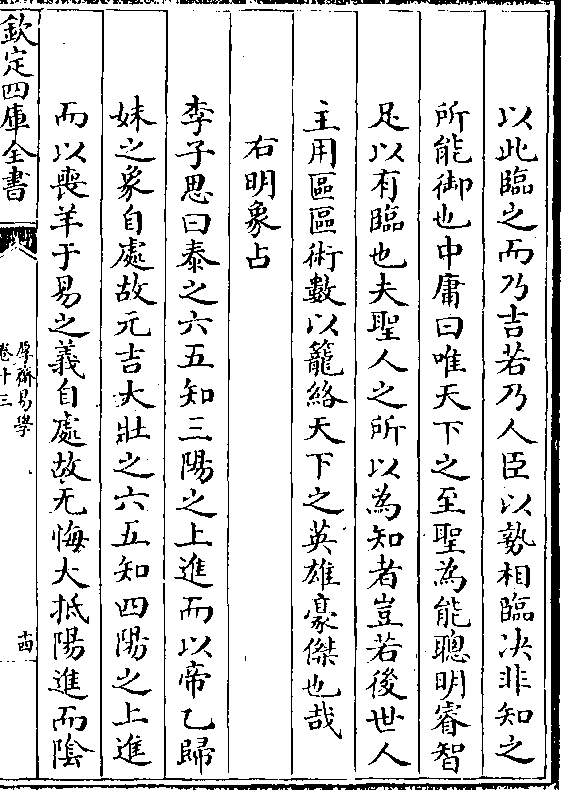 以此臨之而乃吉若乃人臣以勢相臨决非知之
所能御也中庸曰唯天下之至聖為能聰明睿智
足以有臨也夫聖人之所以為知者豈若後世人
主用區區術數以籠絡天下之英雄豪傑也哉
右明象占
李子思曰泰之六五知三陽之上進而以帝乙歸
妹之象自處故元吉大壯之六五知四陽之上進
而以喪羊于易之義自處故无悔大抵陽進而陰
欽定四庫全書
厚齋易學
卷十三
十四